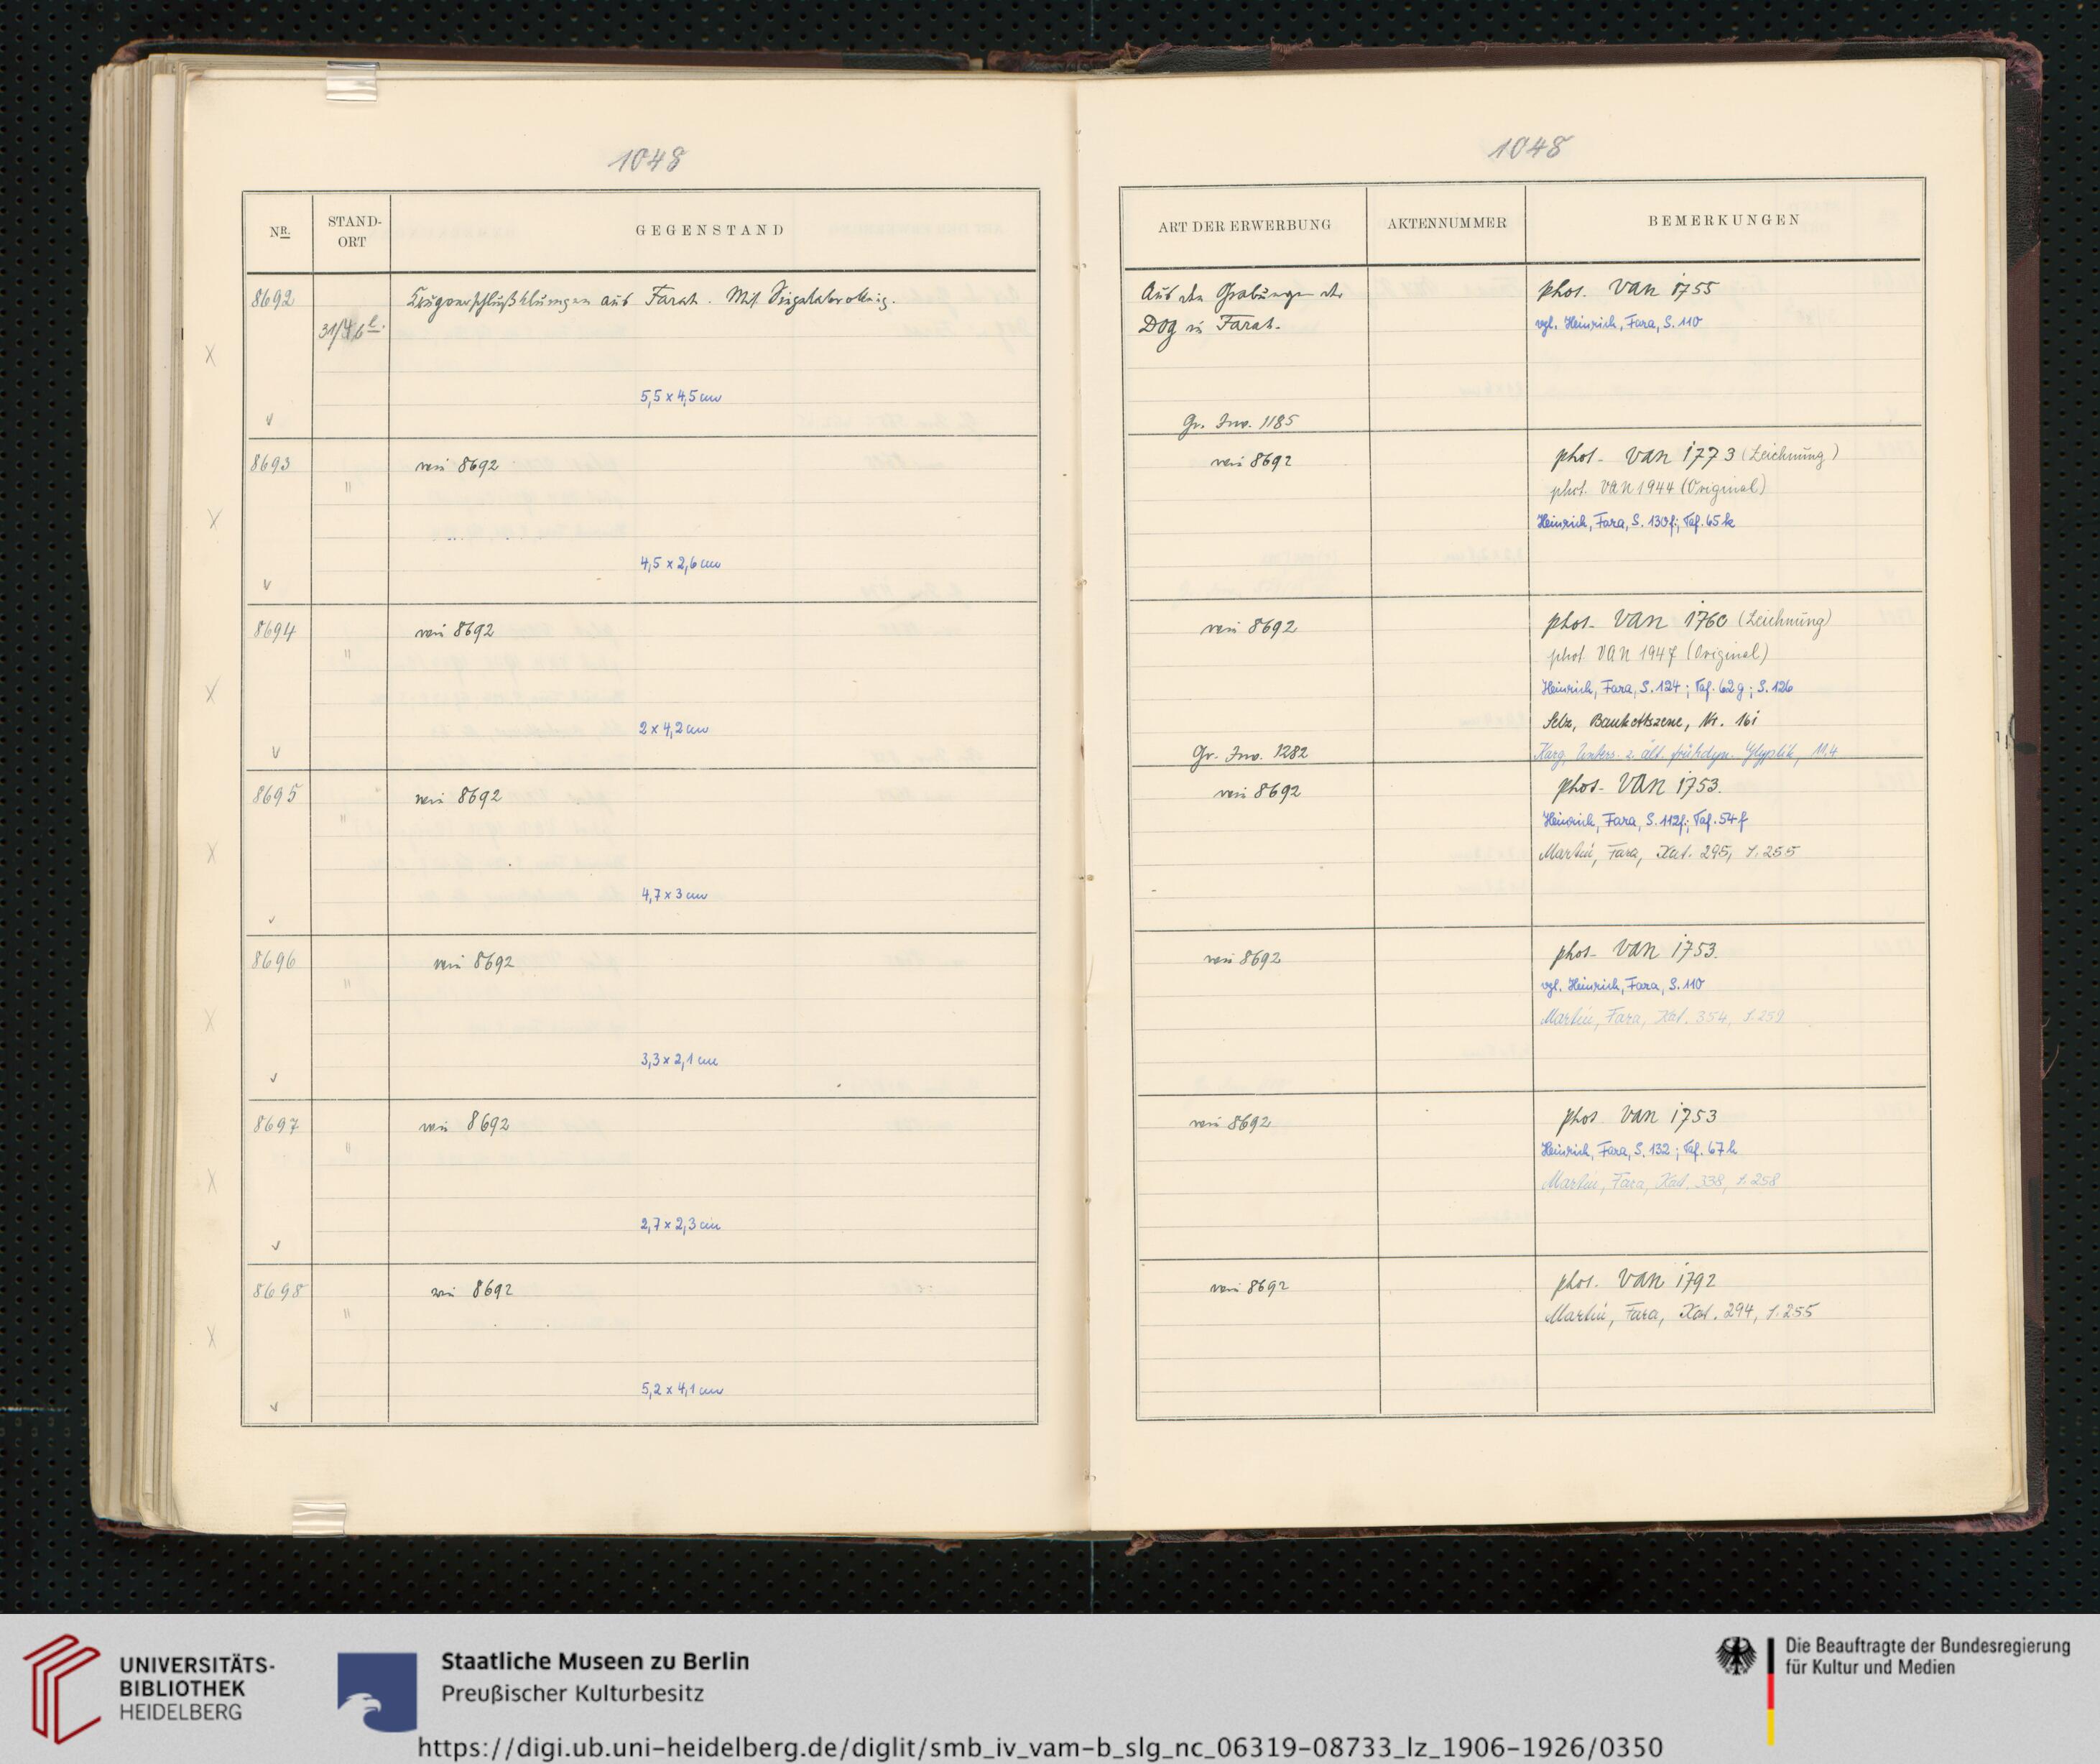 1048
NR.
STAND-
ORT
GEGENSTAND
8692
Krugverschlußklumpen aus Farah. Mit Siegelabrollung.
31/4,6 l.
X
5,5 x 4,5 cm
v
8693
wie 8692
"
X
4,5 x 2,6 cm
v
8694
wie 8692
"
X
2 x 4,2 cm
v
8695
wie 8692
"
X
4,7 x 3 cm
v
8696
wie 8692
"
X
3,3 x 2,1 cm
v
8697
wie 8692
"
X
2,7 x 2,3 cm
v
8698
wie 8692
"
X
5,2 x 4,1 cm
v
1048
ART DER ERWERBUNG
AKTENNUMMER
BEMERKUNGEN
Aus den Grabungen der
phot. VAN 1755
DOG in Farah.
vgl. Heinrich, Fara, S. 110
Gr. Inv. 1185
wie 8692
phot. VAN 1773 (Zeichnung)
phot. VAN 1944 (Original)
Heinrich, Fara, S. 130f; Taf. 65 k
wie 8692
phot. VAN 1760 (Zeichnung)
phot VAN 1947 (Original)
Heinrich, Fara, S. 124; Taf. 62 g; S. 126
Selz, Bankettszene, Nr. 161
Gr. Inv. 1282
Karg, Unters. z. ält. frühdyn. Glyptik, 11,4
wie 8692
phot. VAN 1753.
Heinrich, Fara, S. 112f; Taf. 54 f
Martin, Fara, Kat. 295, S. 255
wie 8692
phot. VAN 1753.
vgl. Heinrich, Fara, S. 110
Martin, Fara, Kat. 354, S. 259
wie 8692
phot VAN 1753
Heinrich, Fara, S. 132; Taf. 67 h
Martin, Fara, Kat. 338, S. 258
wie 8692
phot. VAN 1792
Martin, Fara, Kat. 294, S. 255
UNIVERSITÄTS-
BIBLIOTHEK
HEIDELBERG
Staatliche Museen zu Berlin
Preußischer Kulturbesitz
Die Beauftragte der Bundesregierung
für Kultur und Medien
https://digi.ub.uni-heidelberg.de/diglit/smb_iv_vam-b_slg_nc_06319-08733_lz_1906-1926/0350